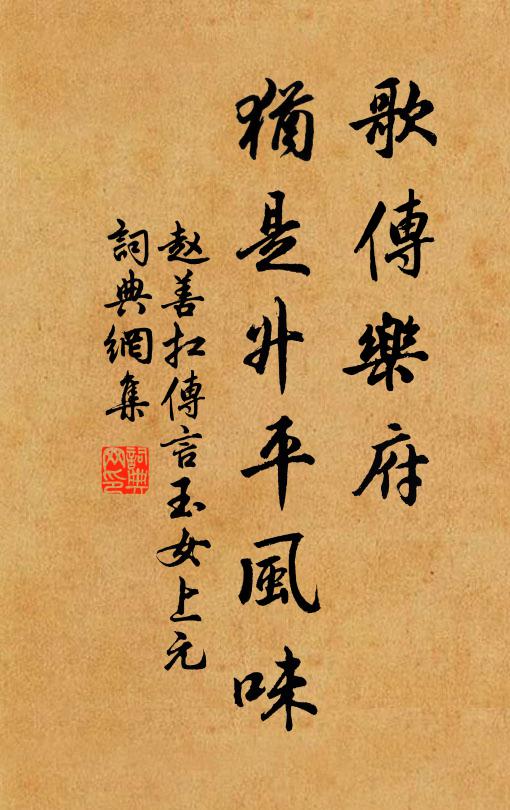 歌傳樂府
猶是升平風味
赵善扛傳言玉女上元
詞典網集
詞典
网印